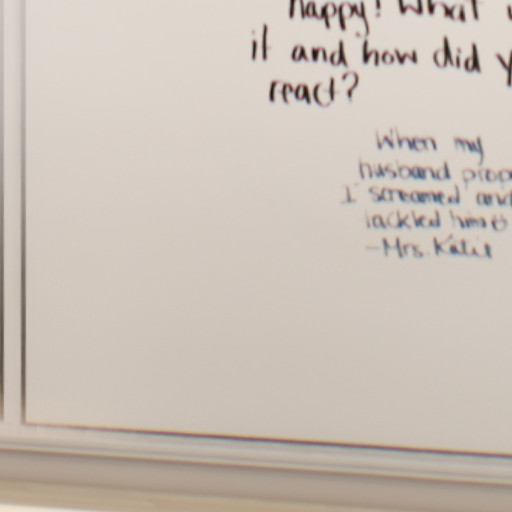 happy! What
it and how did y
react?
When my
husband prop
I screamed and
tackled him
-Mrs. Katie